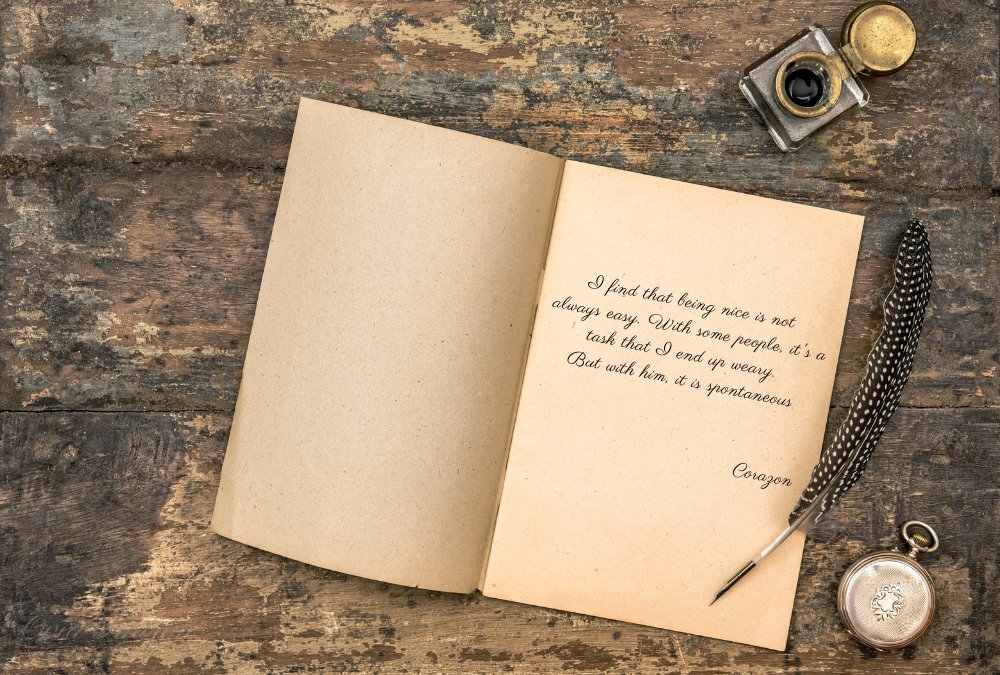 I find that being nice is not
always easy. With some people, it's a
task that I end up weary.
But with him, it is spontaneous
Corazon